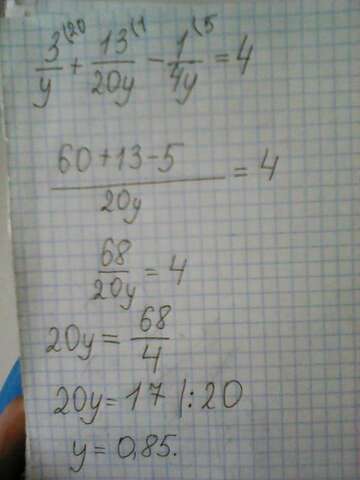 3/y (20 + 13/20y (1 - 1/4y (5 = 4
60+13-5/20y = 4
68/20y = 4
20y = 68/4
20y = 17 |:20
y = 0,85.